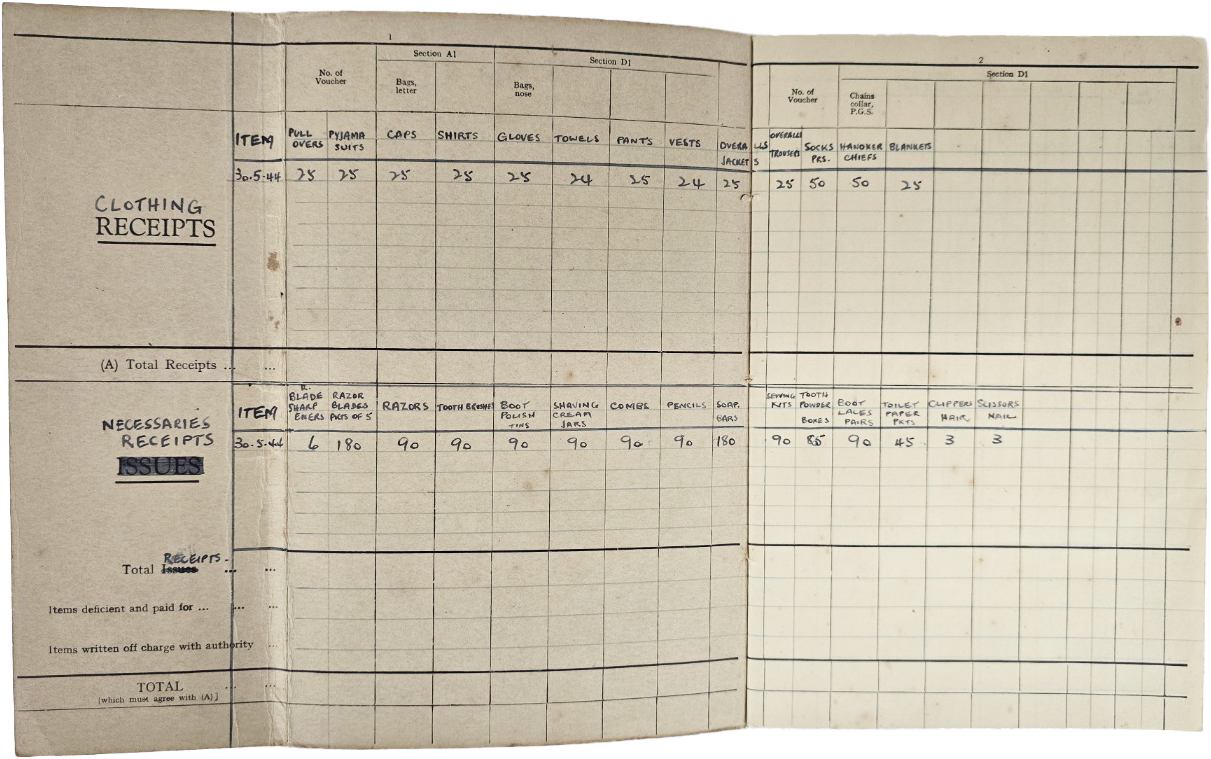 1
2
Section A1
Section D1
Section D1
No. of Voucher
Bags, letter
Bags, nose
No. of Voucher
Chains collar, P.G.S.
ITEM PULL OVERS PYJAMA SUITS CAPS SHIRTS GLOVES TOWELS PANTS VESTS OVERALLS JACKETS OVERALL TROUSERS SOCKS PRS. HANDKER CHIEFS BLANKETS
30.5.44 25 25 25 25 25 24 25 24 25 25 50 50 25
CLOTHING
RECEIPTS
(A) Total Receipts ... ...
ITEM R. BLADE SHARP ENERS RAZOR BLADES PKTS OF 5 RAZORS TOOTH BRUSHES BOOT POLISH TINS SHAVING CREAM JARS COMBS PENCILS SOAP. BARS SEWING KITS TOOTH POWDER BOXES BOOT LACES PAIRS TOILET PAPER PKTS CLIPPERS HAIR SCISSORS NAIL
30.5.44 6 180 90 90 90 90 90 90 180 90 85 90 45 3 3
NECESSARIES
RECEIPTS
ISSUES
RECEIPTS.
Total Issues ... ...
Items deficient and paid for ... ... ...
Items written off charge with authority ...
TOTAL ... ...
[which must agree with (A)]